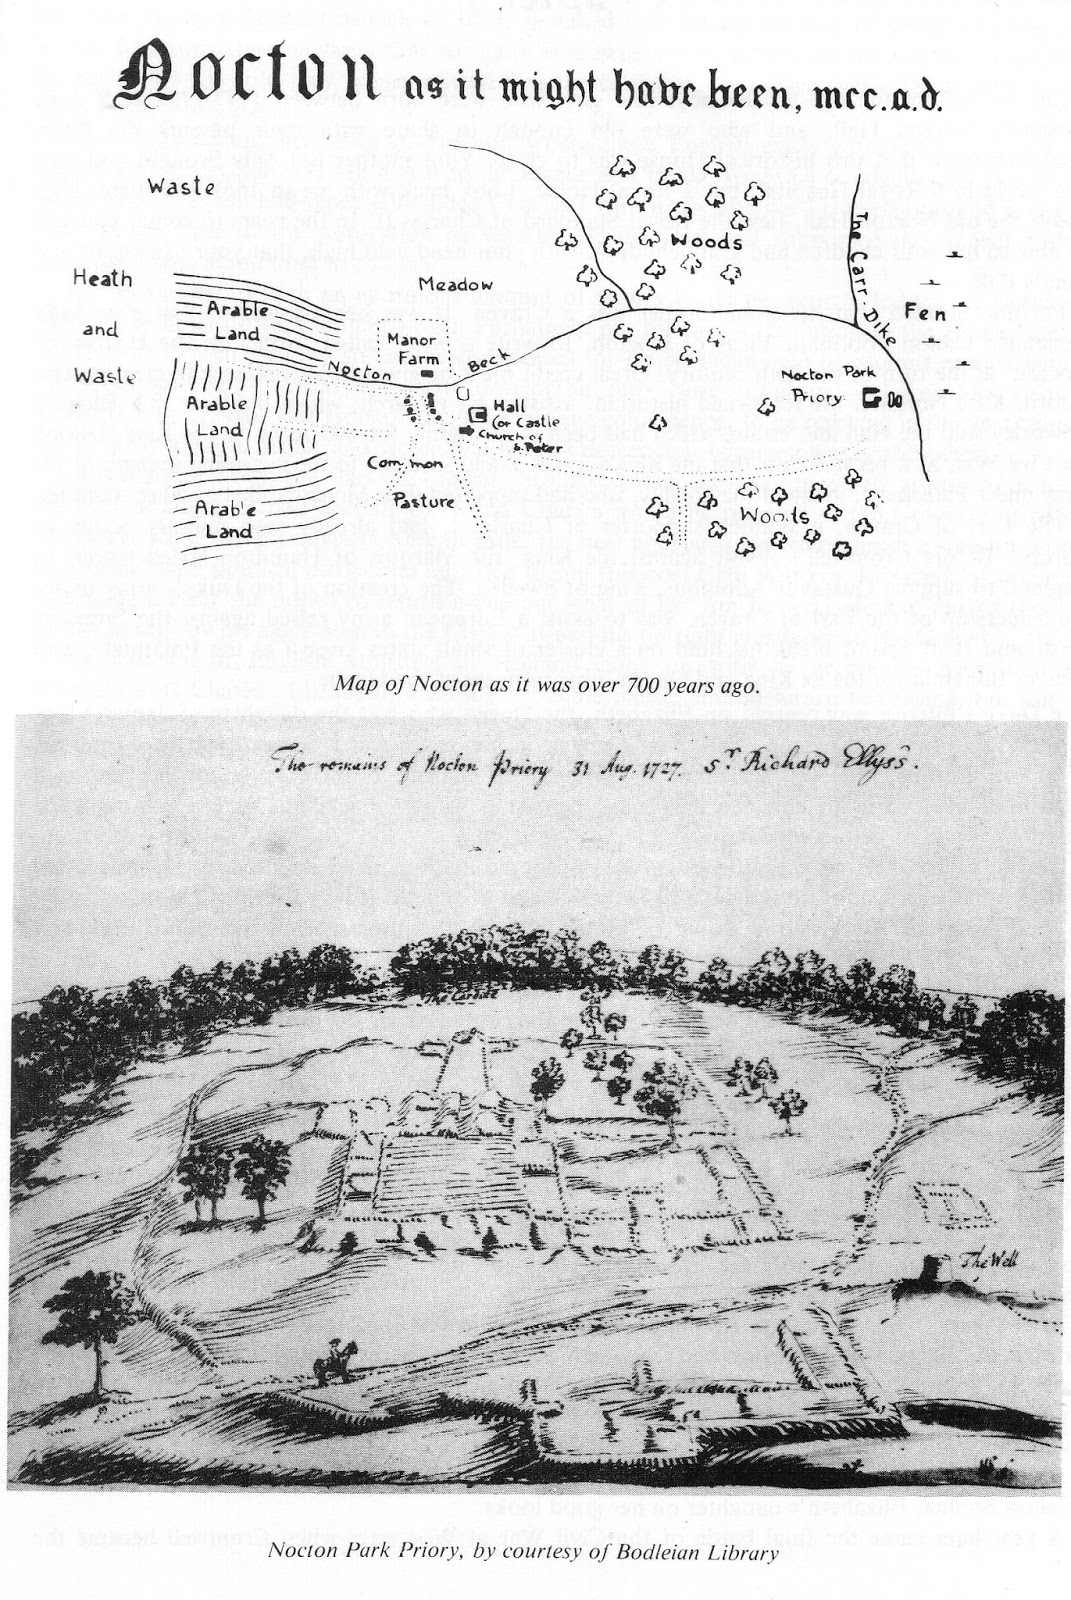 Nocton as it might have been, mcc.a.d.
Waste
Woods
The Carr Dike
Heath
and
Waste
Meadow
Fen
Arable
Land
Manor
Farm
Nocton Beck
Nocton Park
Priory
Arable
Land
Hall
(or Castle
Church of
S. Peter
Common
Pasture
Arable
Land
Woods
Map of Nocton as it was over 700 years ago.
The remains of Nocton Priory 31 Aug. 1727. Sr. Richard Ellys's.
The Cardike
The Well
Nocton Park Priory, by courtesy of Bodleian Library